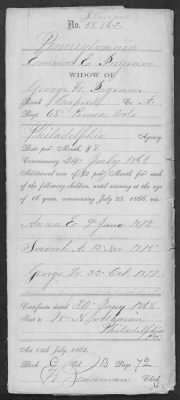 No. 
Pennsylvania
Emma E. Beynon
WIDOW OF
George W. Beynon
Rank Sergeant Co. A.
Regt 68" Penna Vols
Philadelphia Agency
Rate per Month $8.
Commencing 24" July 1863
Additional sum of $2 per Month for each
of the following children, until arriving at the age
of 16 years, commencing July 25, 1866, viz:
Anna E 9 June 1872
Samuel A 12 Nov 1875
George W 22 Oct 1877
Certificate dated 20" Jany 1865
Sent to W. N. Ashman
Philadelphia
Pa
Act 14th July, 1862.
Book E Vol. B Page 72
Clerk